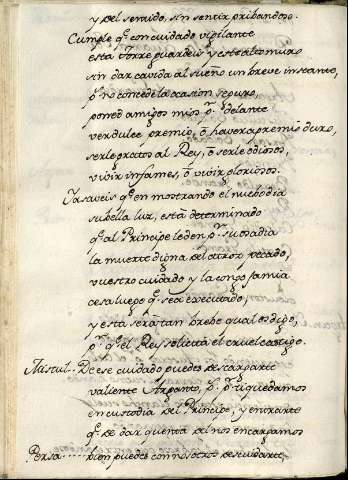 y del seraido, sin sentir pribandoso.
Cumple q̃ con cuidado vigilante
esta torre guardeis y este alto muro
sin dar cavida al sueño un breve instante,
q̃ no concede la ocasion seguro,
poned amigos mios p.r delante
ver dulce premio, ō haver apremio duro,
serle gratos al Rey, ō serle odiosos,
vivir infames, ō vivir gloriosos.
Ya saveis q̃ en mostrando el nuebo dia
su bella luz, está determinado
q̃ al Principe le den p.r su osadia
la muerte digna del atroz pecado,
vuestro cuidado y la congofamia
cesa luego q̃ sea executado,
y esta será tan brebe qual os digo,
p.r q̃ el Rey solicita el cruel castigo.
De ese cuidado puedes descargarte
valiente Arpanto, p.s q̃ quedamos
en custodia del Principe, y entrarte
q̃ de dar quenta del nos encargamos
Persa bien puedes con nosotros descuidarte,